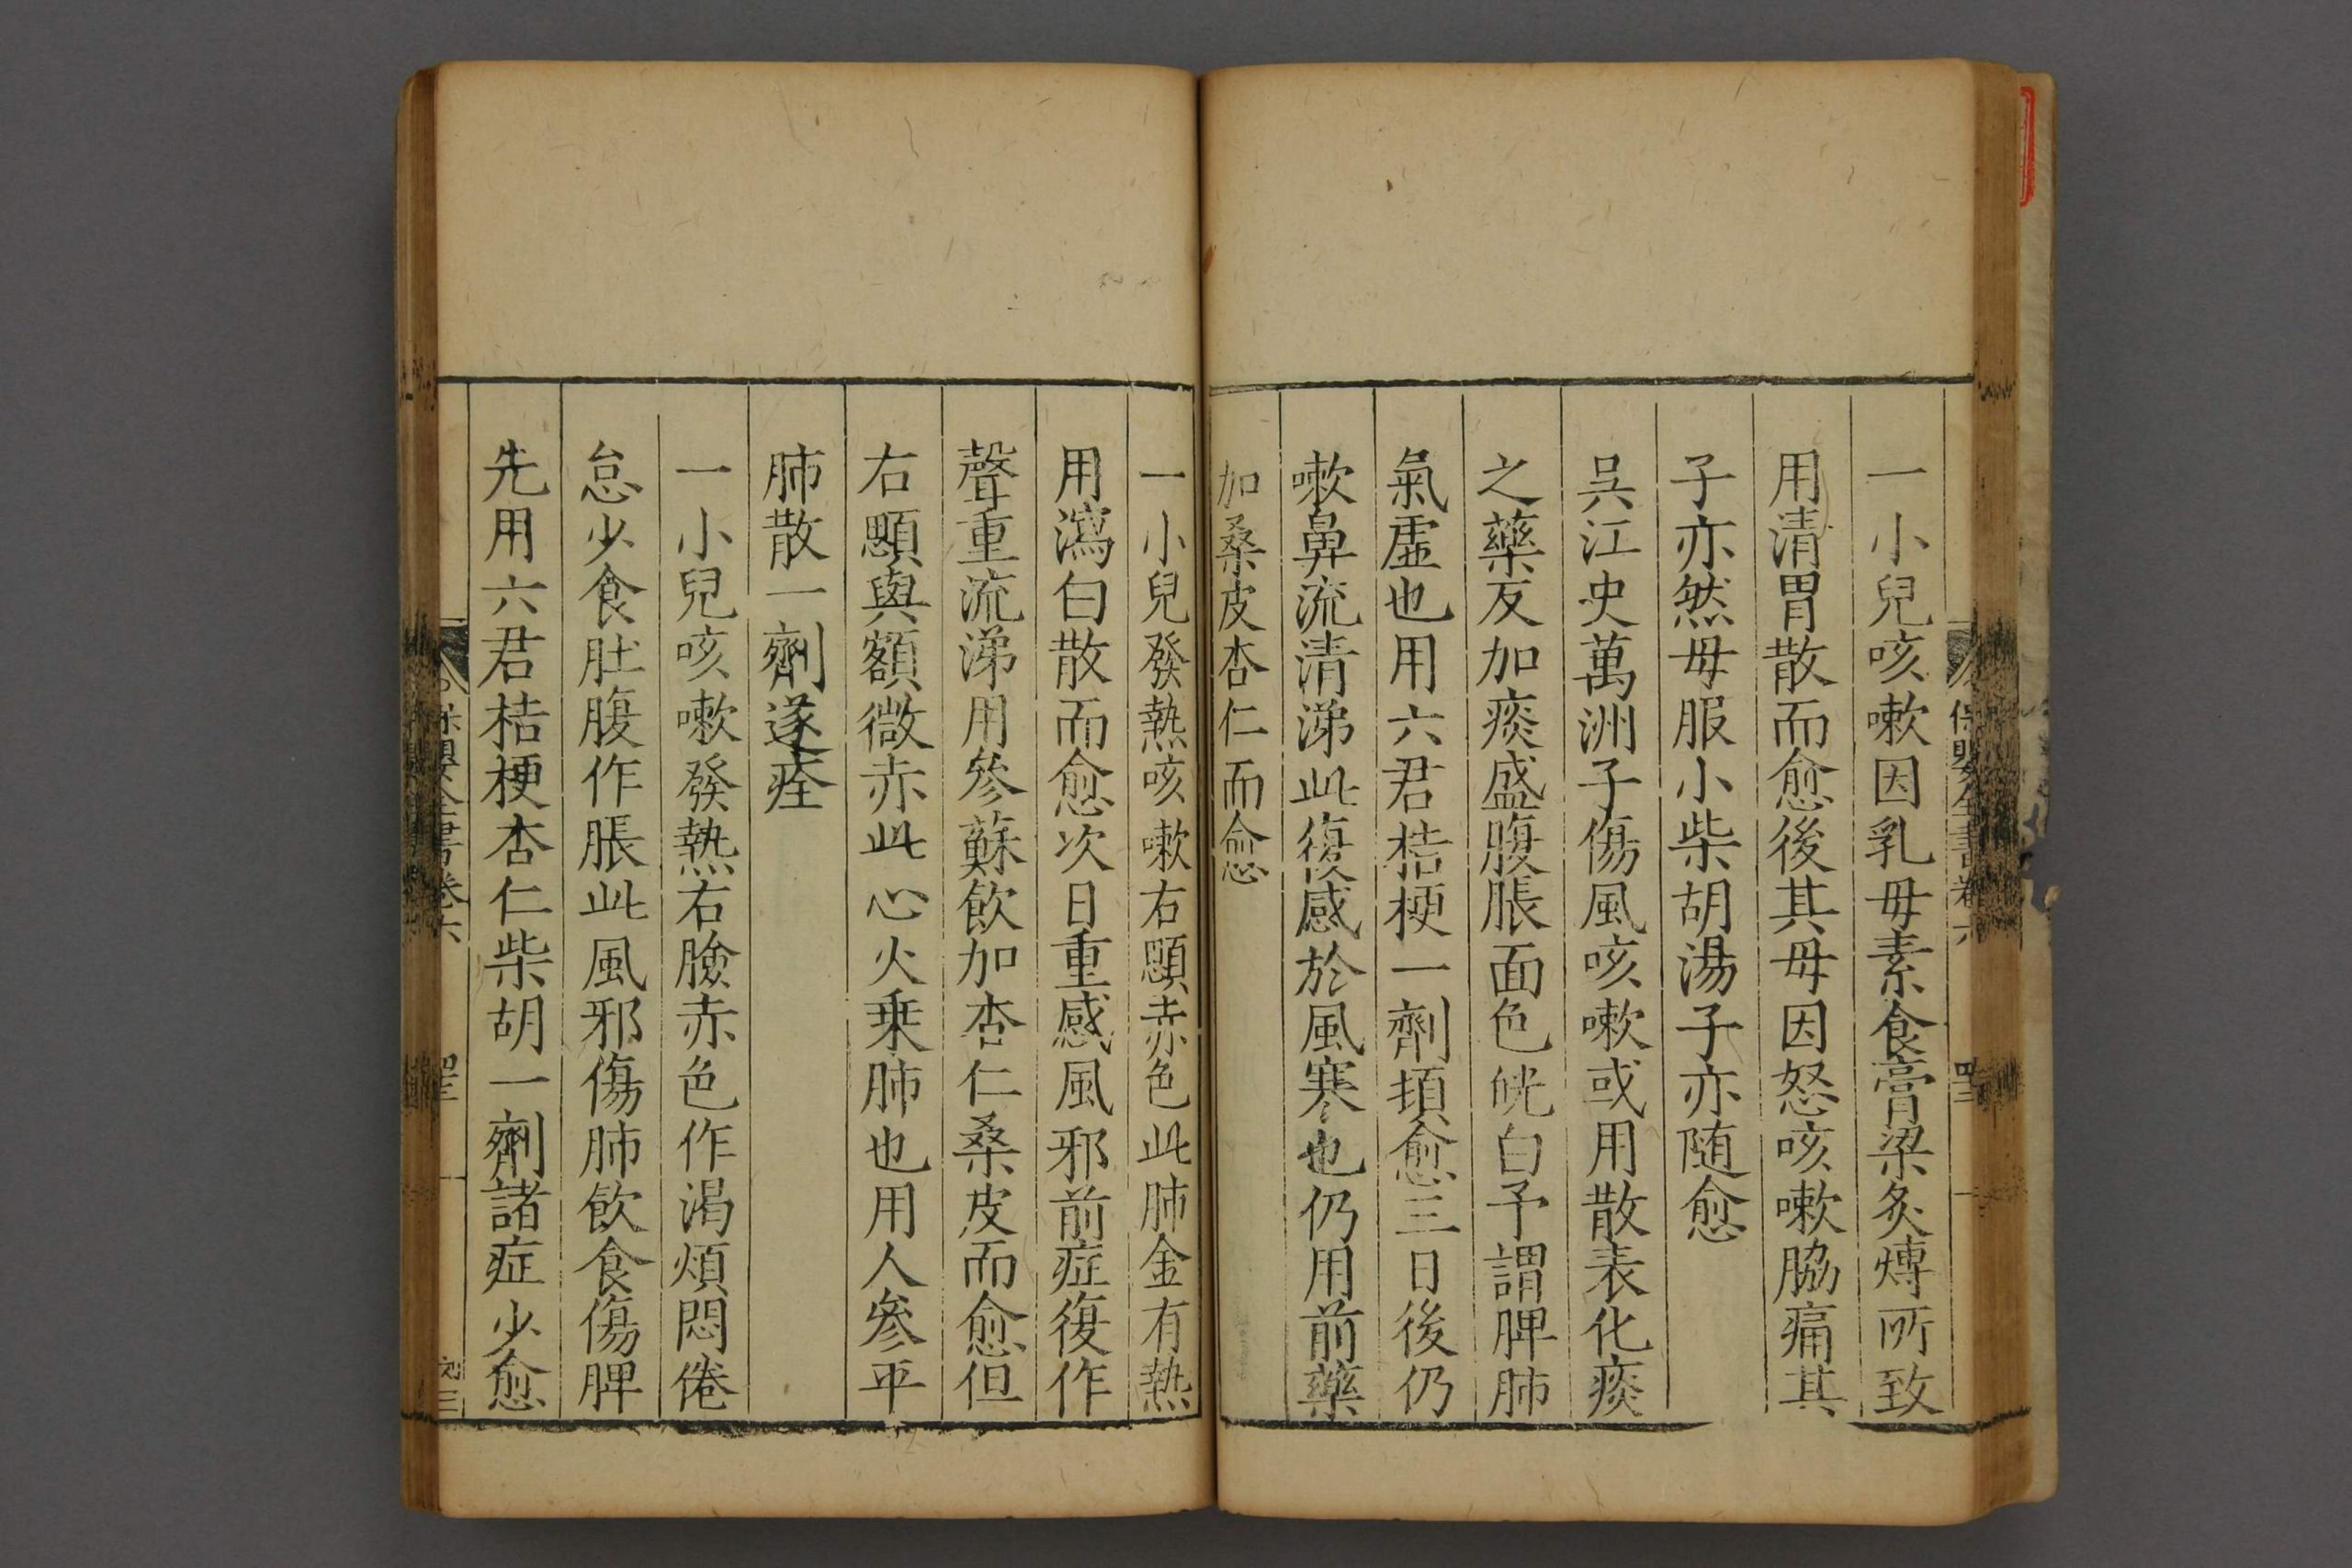 一小兒咳嗽因乳母素食膏粱炙煿所致
用清胃散而愈後其母因怒咳嗽脇痛其
子亦然母服小柴胡湯子亦随愈
吳江史萬洲子傷風咳嗽或用散表化痰
之藥反加痰盛腹脹面色㿠白予謂脾肺
氣虛也用六君桔梗一劑頓愈三日後仍
嗽鼻流清涕此復感於風寒也仍用前藥
加桑皮杏仁而愈
一小兒發熱咳嗽右顋赤色此肺金有熱
用瀉白散而愈次日重感風邪前症復作
聲重流涕用參蘇飲加杏仁桑皮而愈但
右顋與額微赤此心火乗肺也用人參平
肺散一劑遂痊
一小兒咳嗽發熱右臉赤色作渴煩悶倦
怠少食肚腹作脹此風邪傷肺飲食傷脾
先用六君桔梗杏仁柴胡一劑諸症少愈